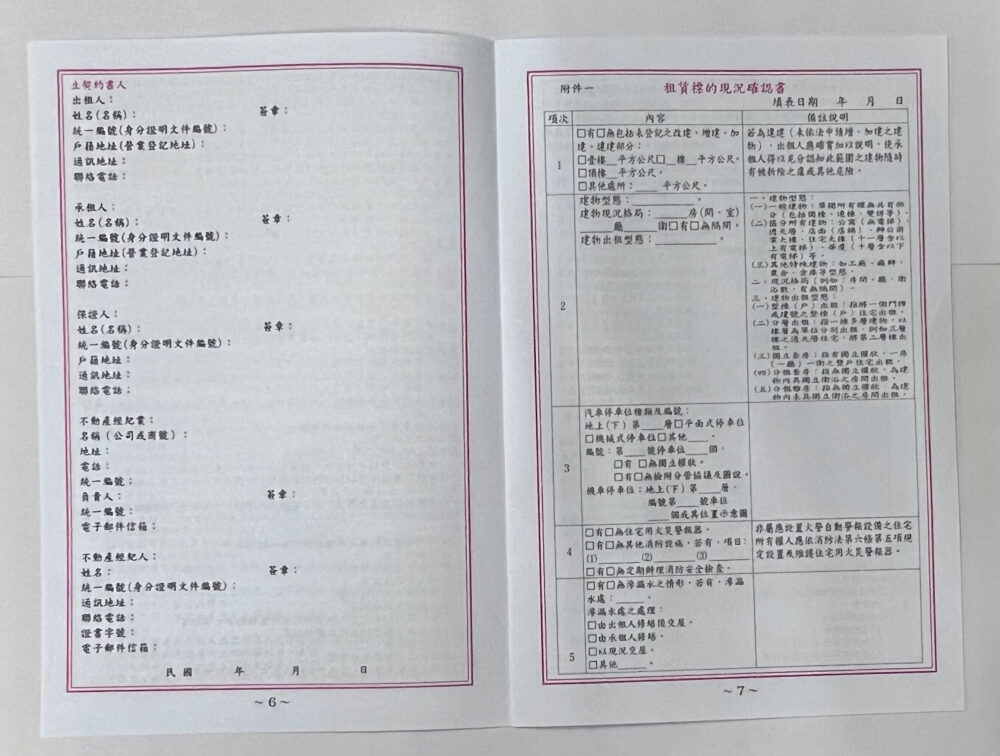 立契約書人
出租人：
姓名(名稱)：　簽章：
統一編號(身分證明文件編號)：
戶籍地址(營業登記地址)：
通訊地址：
聯絡電話：
承租人：
姓名(名稱)：　簽章：
統一編號(身分證明文件編號)：
戶籍地址(營業登記地址)：
通訊地址：
聯絡電話：
保證人：
姓名(名稱)：　簽章：
統一編號(身分證明文件編號)：
戶籍地址：
通訊地址：
聯絡電話：
不動產經紀業：
名稱（公司或商號）：
地址：
電話：
統一編號：
負責人：　簽章：
統一編號：
電子郵件信箱：
不動產經紀人：
姓名：　簽章：
統一編號(身分證明文件編號)：
通訊地址：
聯絡電話：
證書字號：
電子郵件信箱：
民國　年　月　日
~6~
附件一　租賃標的現況確認書
填表日期　年　月　日
項次　內容　備註說明
1
□有□無包括未登記之改建、增建、加
建、違建部分：
□壹樓__平方公尺□__樓__平方公尺。
□頂樓__平方公尺。
□其他處所：____平方公尺。
若為違建（未依法申請增、加建之建
物），出租人應確實加以說明，使承
租人得以充分認知此範圍之建物隨時
有被拆除之虞或其他危險。
2
建物型態：________。
建物現況格局：____房(間、室)
____廳____衛□有□無隔間。
建物出租型態：________。
一、建物型態：
(一)一般建物：單獨所有權無共有部
分（包括獨棟、連棟、雙併等）。
(二)區分所有建物：公寓（無電梯）、
透天厝、店面（店鋪）、辦公商
業大樓、住宅大樓（十一層含以
上有電梯）、華廈（十層含以下
有電梯）等。
(三)其他特殊建物：如工廠、廠辦、
農舍、倉庫等型態。
二、現況格局（例如：房間、廳、衛
浴數，有無隔間）。
三、建物出租型態：
(一)整棟（戶）出租：指將一個門牌
或建號之整棟（戶）住宅出租。
(二)分層出租：指一棟多層建物，以
樓層為單位分別出租，例如三層
樓之透天厝住宅，將第二層樓出
租。
(三)獨立套房：指有獨立權狀，一房
（一廳）一衛之整戶住宅出租。
(四)分租套房：指無獨立權狀，為建
物內具獨立衛浴之房間出租。
(五)分租雅房：指無獨立權狀，為建
物內未具獨立衛浴之房間出租。
3
汽車停車位種類及編號：
地上(下)第____層□平面式停車位
□機械式停車位□其他____。
編號：第____號停車位____個，
□有 □無獨立權狀。
□有□無檢附分管協議及圖說。
機車停車位：地上(下)第____層，
編號第____號車位
____個或其位置示意圖
4
□有□無住宅用火災警報器。
□有□無其他消防設施，若有，項目：
(1)____(2)____(3)____。
□有□無定期辦理消防安全檢查。
非屬應設置火警自動警報設備之住宅
所有權人應依消防法第六條第五項規
定設置及維護住宅用火災警報器。
5
□有□無滲漏水之情形，若有，滲漏
水處：____。
滲漏水處之處理：
□由出租人修繕後交屋。
□由承租人修繕。
□以現況交屋。
□其他____。
~7~